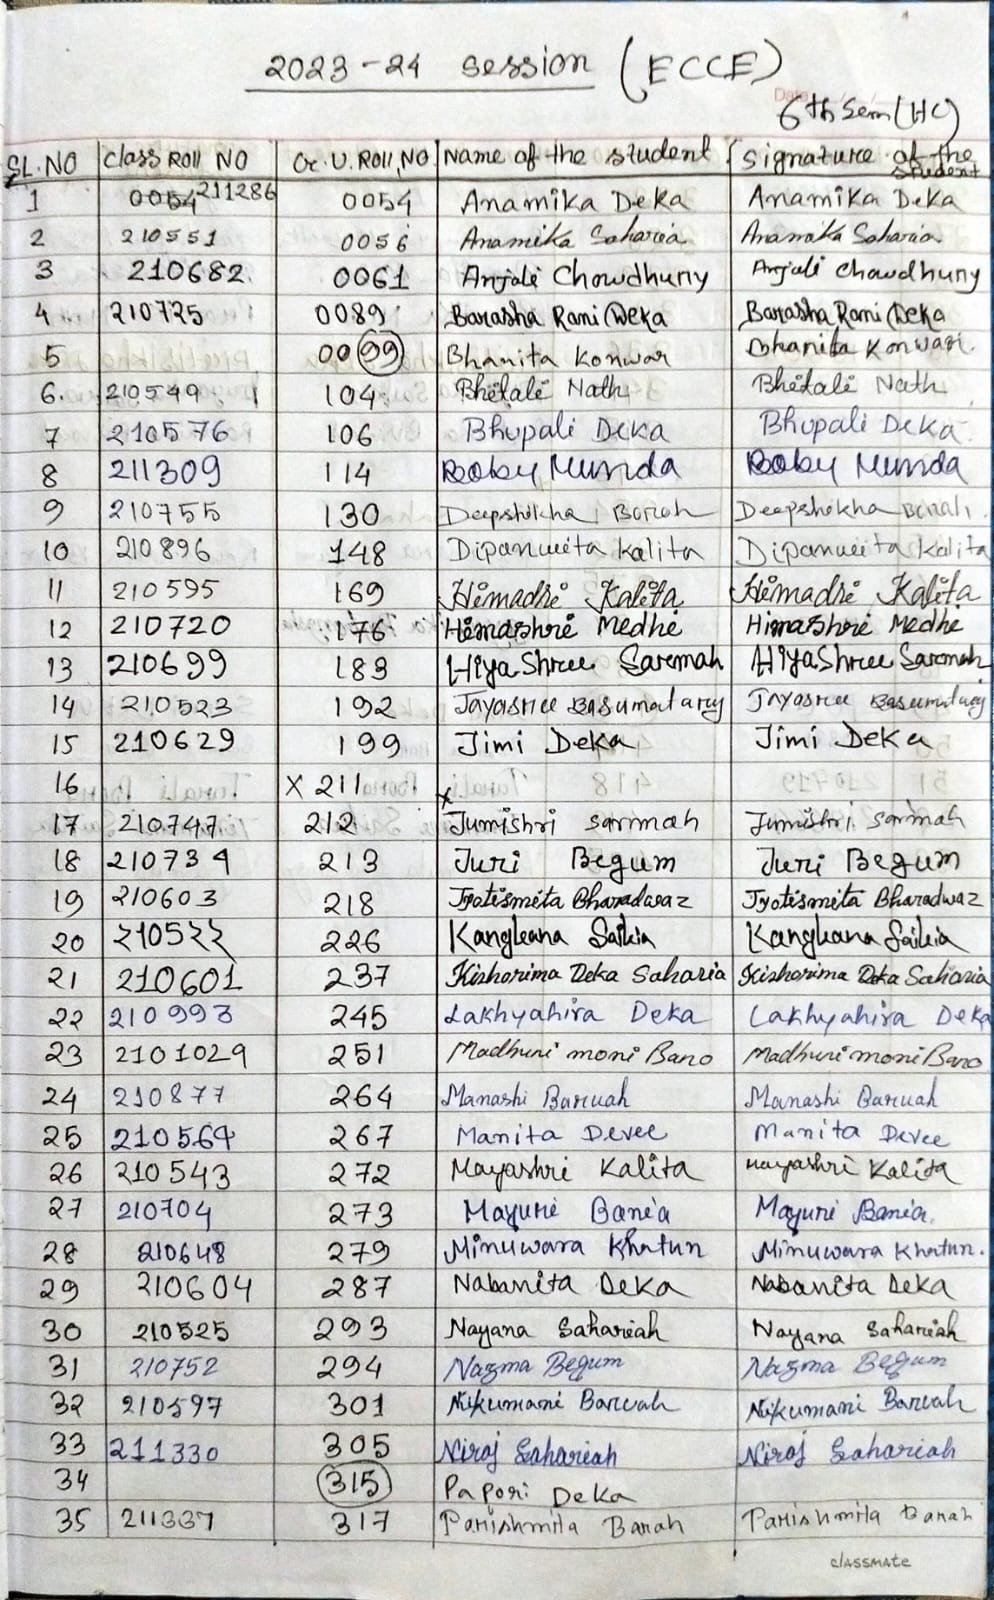 2023-24 session (ECCE)
6th Sem (HC)
SL.NO Class Roll NO G.U.Roll NO Name of the student Signature of the student
1 0054 211286 0054 Anamika Deka Anamika Deka
2 210551 0056 Anamika Saharia Anamika Saharia
3 210682 0061 Anjali Chowdhury Anjali Chowdhury
4 210725 0089 Barasha Rani Deka Barasha Rani Deka
5 0099 Bhanita Konwar Bhanita Konwar.
6. 210549 104 Bhitali Nath Bhitali Nath
7 210576 106 Bhupali Deka Bhupali Deka
8 211309 114 Boby Munda Boby Munda
9 210755 130 Deepshikha Borah Deepshikha Borah.
10 210896 148 Dipanwita Kalita Dipanwita Kalita
11 210595 169 Himadri Kalita Himadri Kalita
12 210720 176 Himashri Medhi Himashri Medhi
13 210699 183 Hiya Shree Sarmah Hiya Shree Sarmah
14 210523 192 Jayasree Basumatary Jayasree Basumatary
15 210629 199 Jimi Deka Jimi Deka
16 X 211 x
17 210747 212 Jumishri Sarmah Jumishri Sarmah
18 210734 213 Juri Begum Juri Begum
19 210603 218 Jyotismita Bharadwaz Jyotismita Bharadwaz
20 210522 226 Kangkana Saikia Kangkana Saikia
21 210601 237 Kishorima Deka Saharia Kishorima Deka Saharia
22 210993 245 Lakhyahira Deka Lakhyahira Deka
23 2101029 251 Madhuri moni Baro Madhuri moni Baro
24 210877 264 Manashi Baruah Manashi Baruah
25 210564 267 Manita Devee Manita Devee
26 210543 272 Mayashri Kalita Mayashri Kalita
27 210704 273 Mayuri Bania Mayuri Bania.
28 210648 279 Minuwara Khatun Minuwara Khatun.
29 210604 287 Nabanita Deka Nabanita Deka
30 210525 293 Nayana Sahariah Nayana Sahariah
31 210752 294 Nazma Begum Nazma Begum
32 210597 301 Nikumani Baruah Nikumani Baruah
33 211330 305 Niroj Sahariah Niroj Sahariah
34 315 Papori Deka
35 211337 317 Parishmita Barah Parishmita Barah
classmate